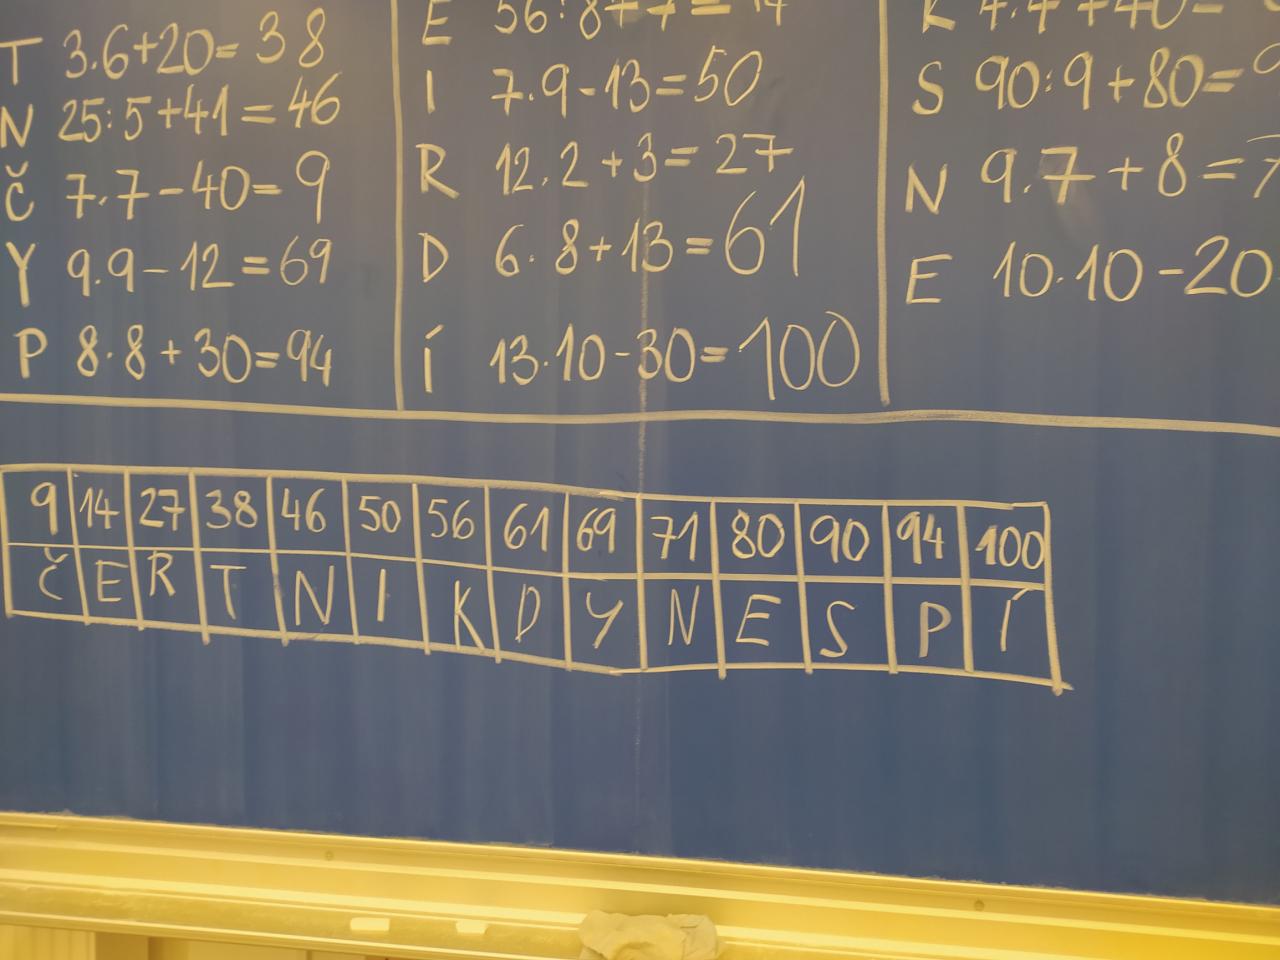 T 3.6+20=38
N 25:5+41=46
Č 7.7-40=9
Y 9.9-12=69
P 8.8+30=94
E 56:8+7=14
I 7.9-13=50
R 12.2+3=27
D 6.8+13=61
Í 13.10-30=100
K 4.4+40=
S 90:9+80=9
N 9.7+8=7
E 10.10-20
9 14 27 38 46 50 56 61 69 71 80 90 94 100
Č E R T N I K D Y N E S P Í